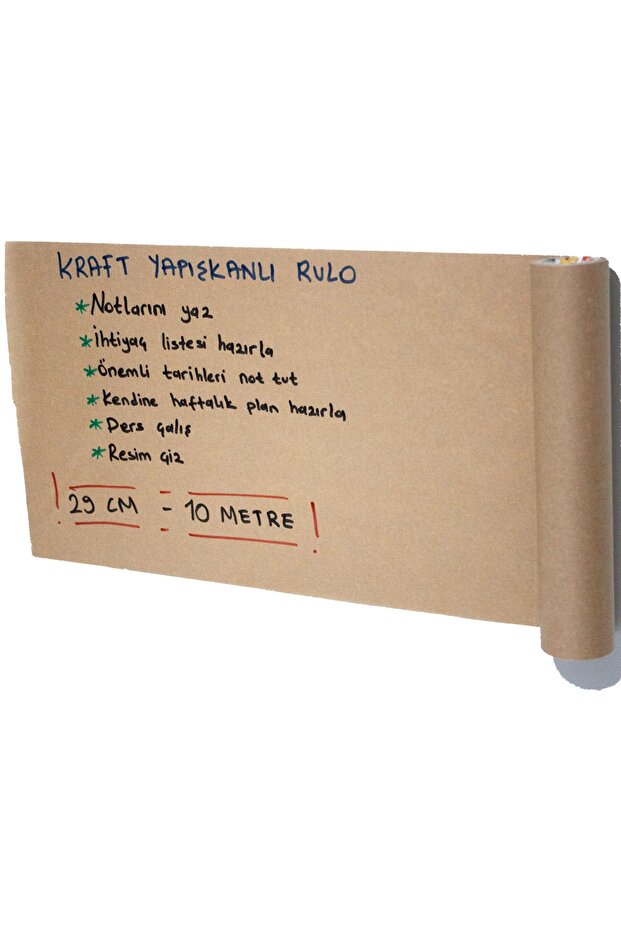 KRAFT YAPIŞKANLI RULO
*Notlarını yaz
*İhtiyaç listesi hazırla
*Önemli tarihleri not tut
*Kendine haftalık plan hazırla
*Ders çalış
*Resim çiz
! 29 CM - 10 METRE !